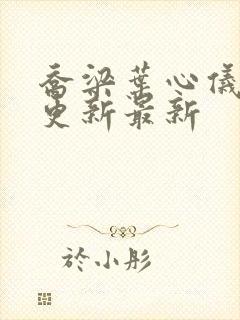 乔梁葉心儀
更新最新
於小彤